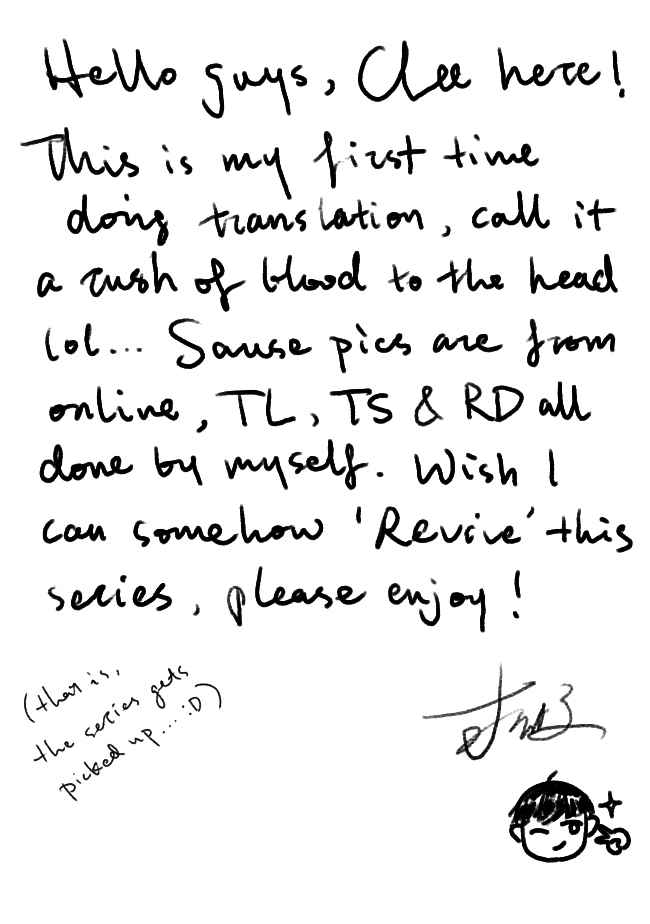 Hello guys, Clee here!
This is my first time
doing translation, call it
a rush of blood to the head
lol... Sause pics are from
online, TL, TS & RD all
done by myself. Wish I
can somehow 'Revive' this
series, please enjoy!
(that is,
the series gets
picked up... :D)